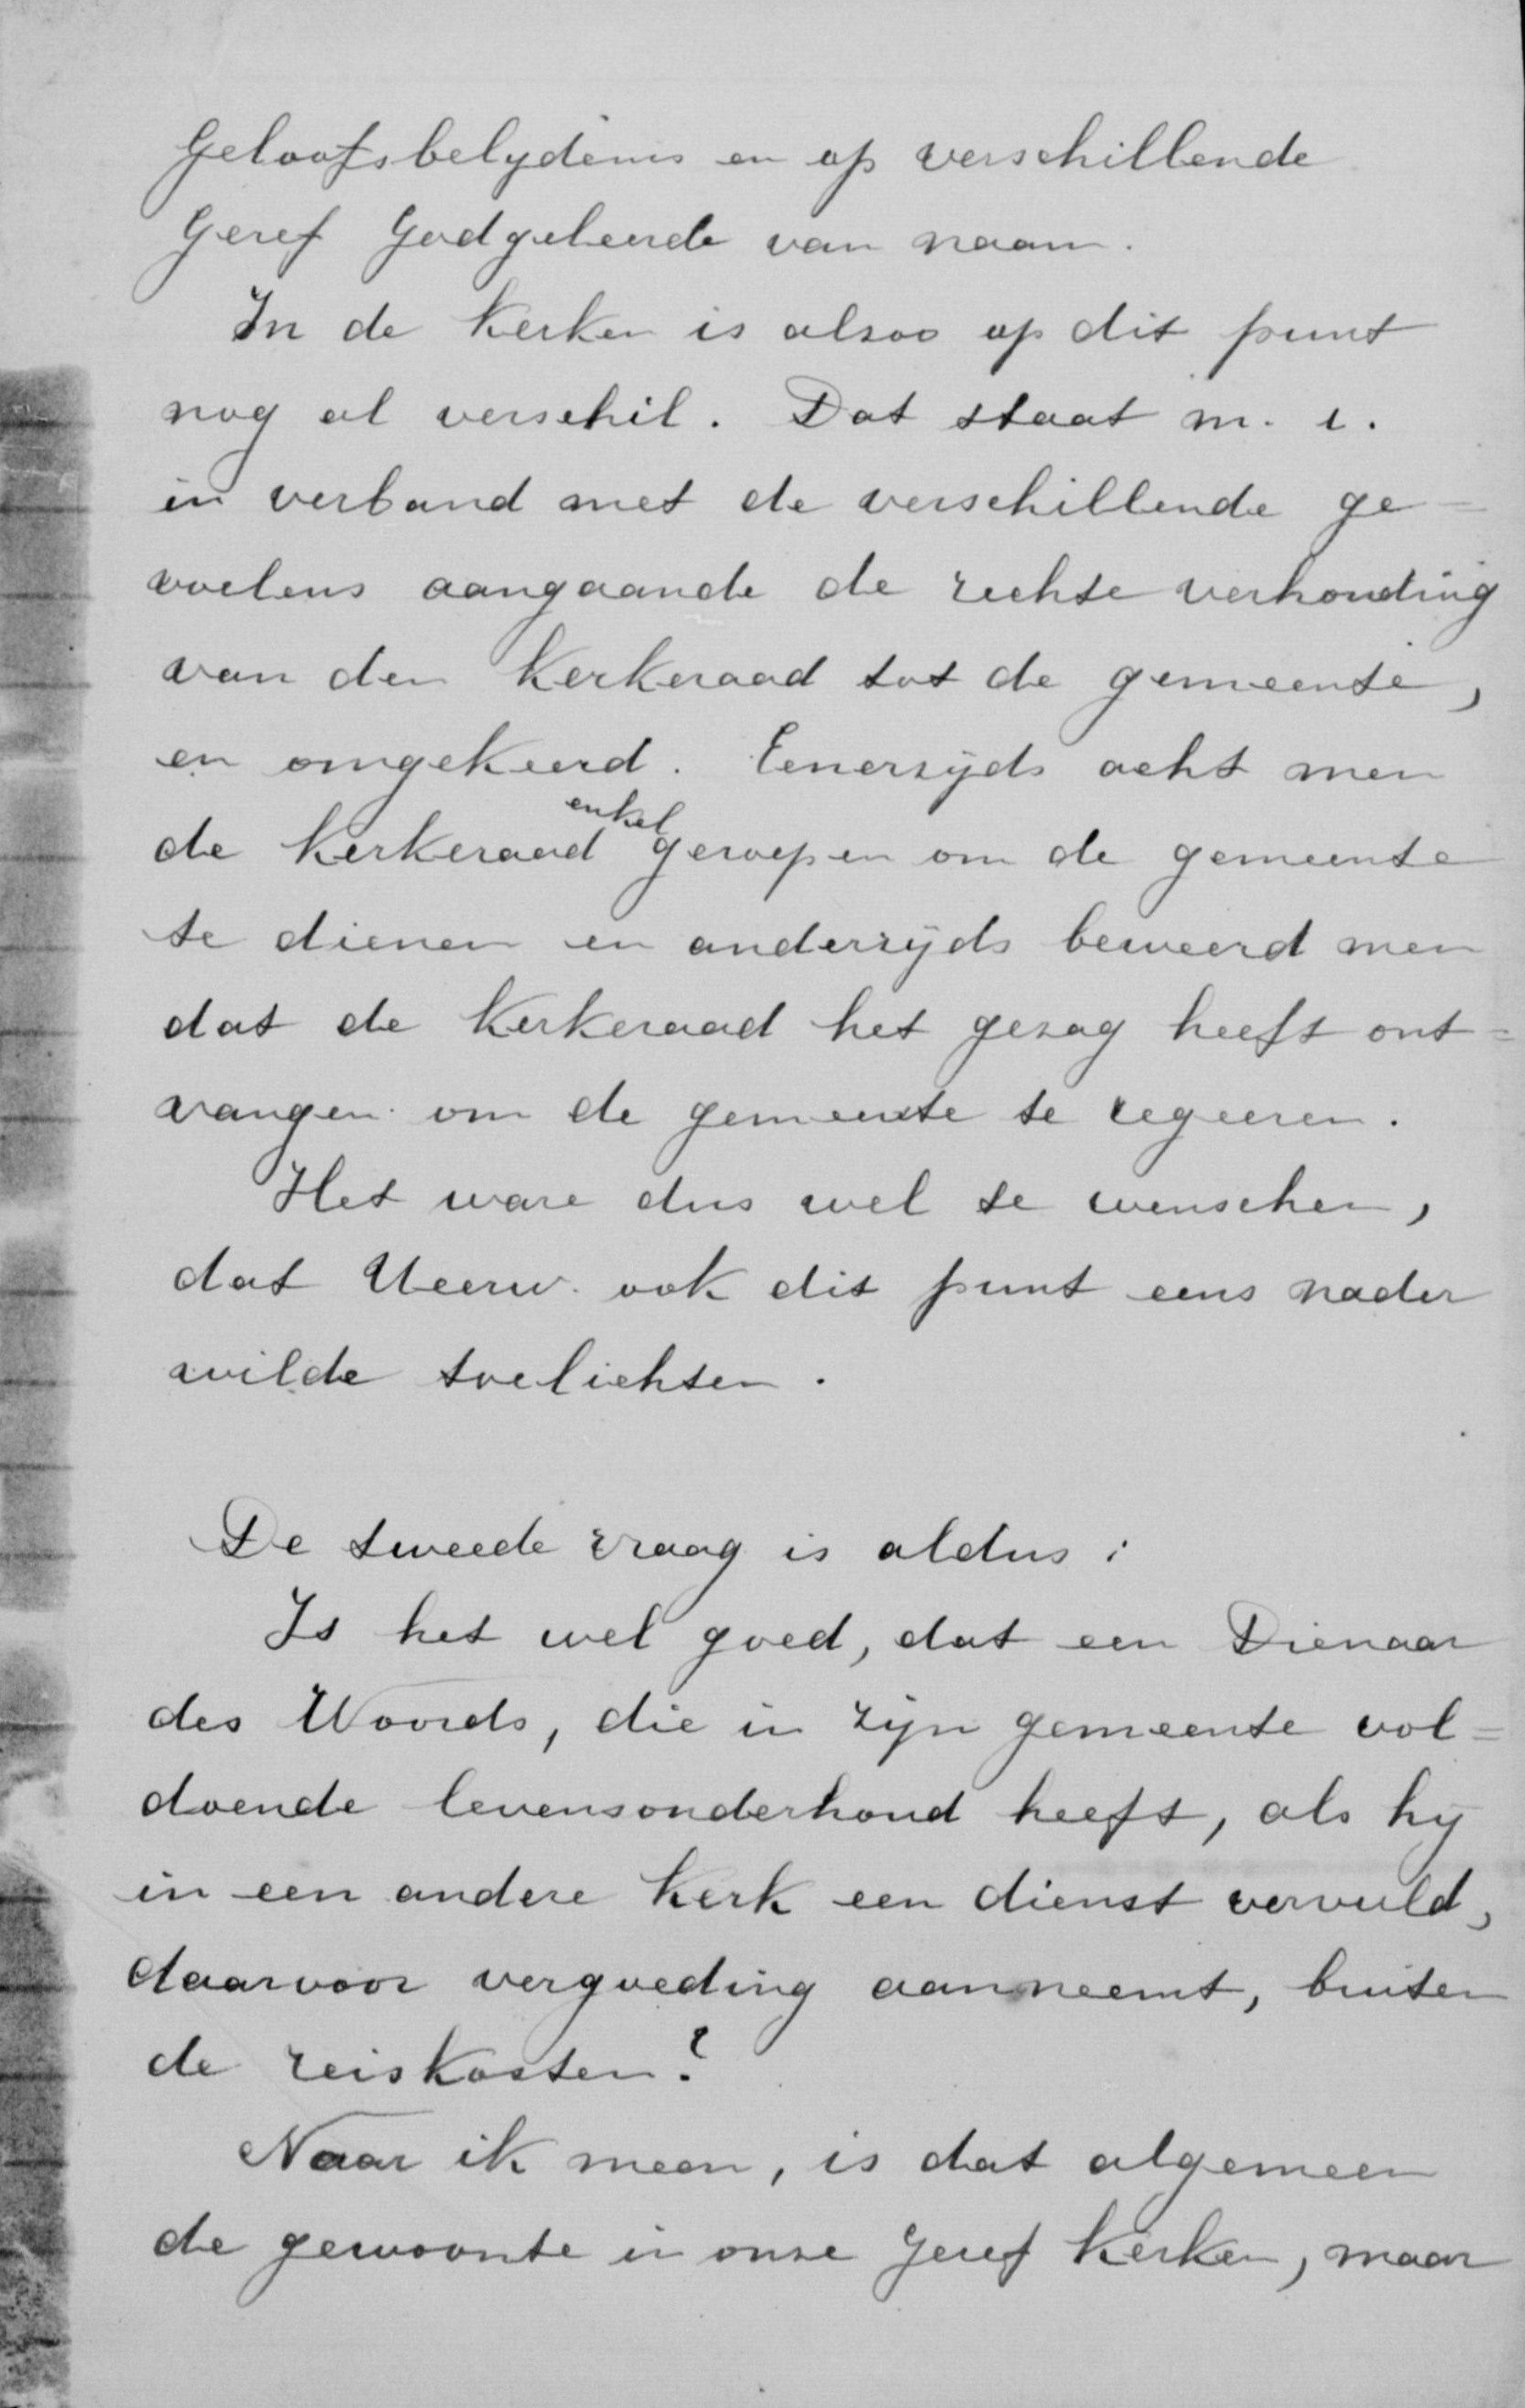 Geloofsbelydenis en op verschillende
Geref Godgeleerde van naam.
In de Kerken is alzoo op dit punt
nog al verschil. Dat staat m. i.
in verband met de verschillende ge=
voelens aangaande de rechte verhouding
van den Kerkeraad tot de gemeente,
en omgekeerd. Eenerzyds acht men
de Kerkeraad enkel geroepen om de gemeente
te dienen en anderzyds beweerd men
dat de Kerkeraad het gezag heeft ont=
vangen om de gemeente te regeeren.
Het ware dus wel te wenschen,
dat Ueerw. ook dit punt eens nader
wilde toelichten.
De tweede vraag is aldus:
Is het wel goed, dat een Dienaar
des Woords, die in zyn gemeente vol=
doende levensonderhoud heeft, als hy
in een andere Kerk een dienst vervuld,
daarvoor vergoeding aanneemt, buiten
de reiskosten?
Naar ik meen, is dat algemeen
de gewoonte in onze Geref Kerken, maar